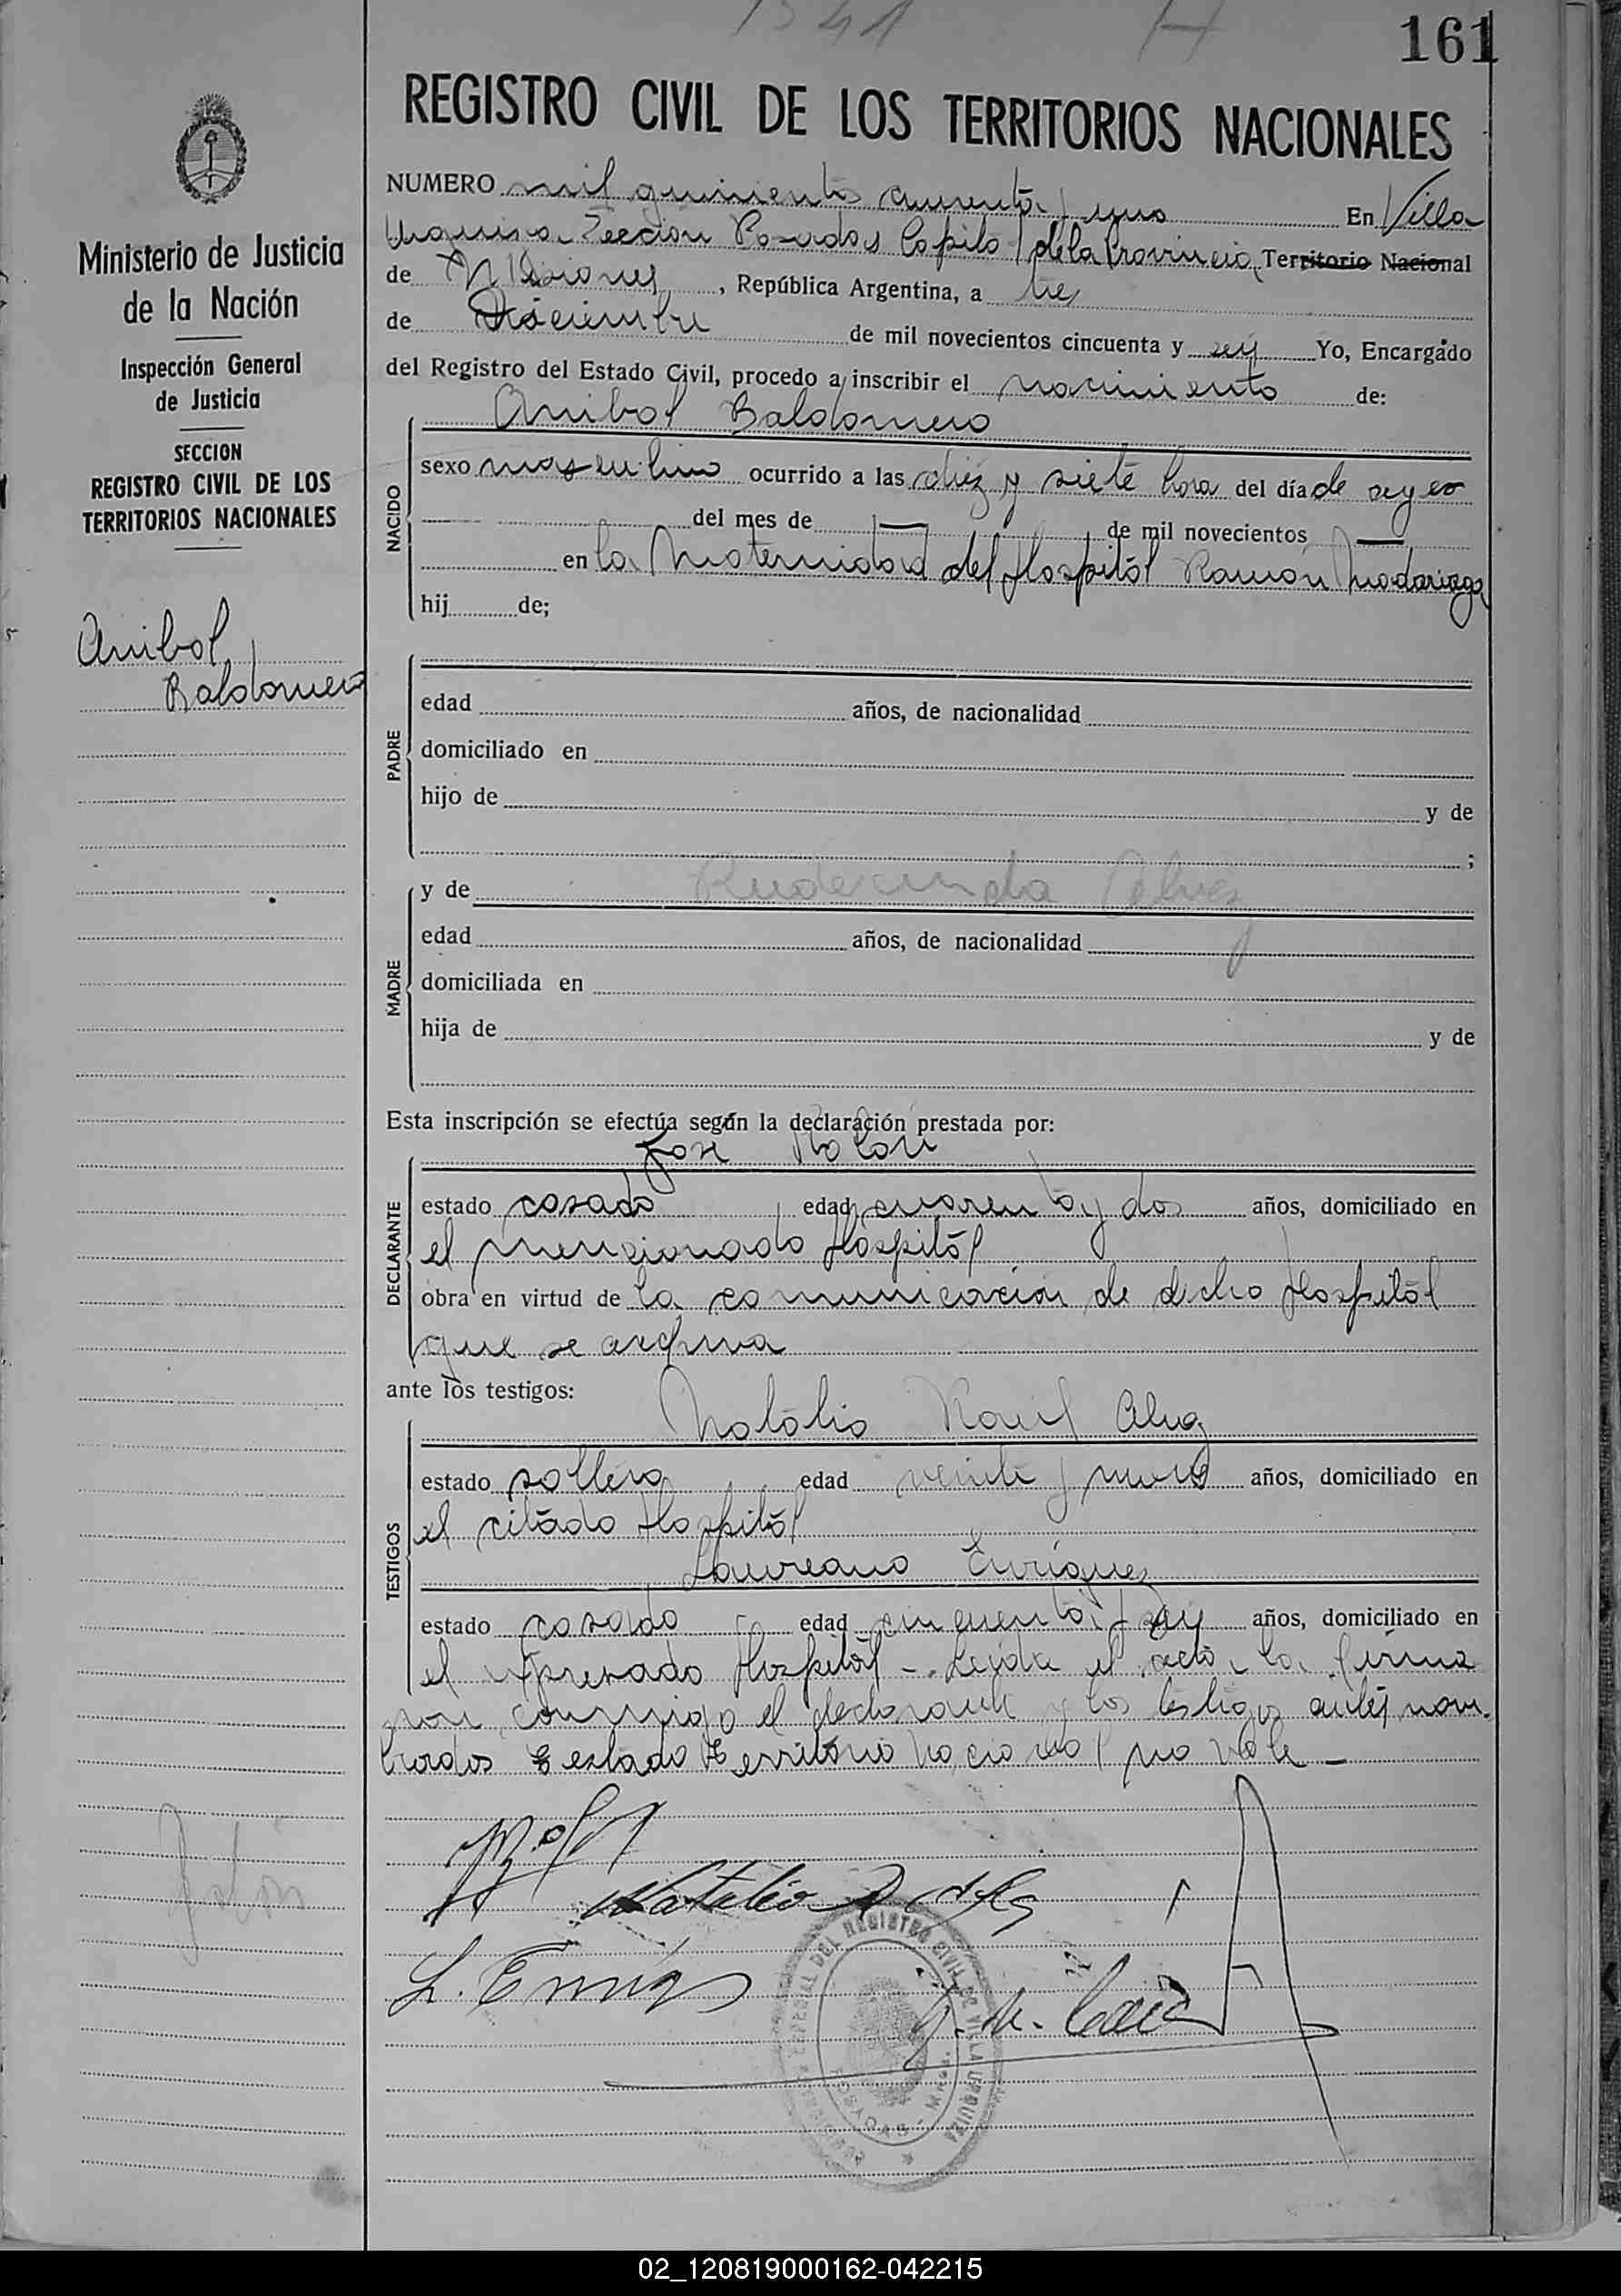 1541 H
161
REGISTRO CIVIL DE LOS TERRITORIOS NACIONALES
Ministerio de Justicia
de la Nación
Inspección General
de Justicia
SECCION
REGISTRO CIVIL DE LOS
TERRITORIOS NACIONALES
Anibal
Baldomero
NUMERO mil quinientos cuarenta y uno En Villa
Urquiza Sección Posadas Capital de la Provincia Territorio Nacional
de Misiones, República Argentina, a tres
de Diciembre de mil novecientos cincuenta y seis Yo, Encargado
del Registro del Estado Civil, procedo a inscribir el nacimiento de:
NACIDO
Anibal Baldomero
sexo masculino ocurrido a las diez y siete hora del día de ayer
del mes de — de mil novecientos —
en la Maternidad del Hospital Ramón Madariaga
hij de;
PADRE
edad años, de nacionalidad
domiciliado en
hijo de y de
;
MADRE
y de Rudecinda Alvez
edad años, de nacionalidad
domiciliada en
hija de y de
Esta inscripción se efectúa según la declaración prestada por:
DECLARANTE
José Rolon
estado casado edad cuarenta y dos años, domiciliado en
el mencionado Hospital
obra en virtud de la comunicación de dicho Hospital
que se archiva
ante los testigos:
TESTIGOS
Natalio Raul
estado soltero edad veinte y nueve años, domiciliado en
el citado Hospital
Laureano Enriquez
estado casado edad cincuenta y seis años, domiciliado en
el expresado Hospital -. Leida el acta, la firma
ron conmigo el declarante y los testigos antes nom-
brados E estado Territorio Nacional no vale —
Natalio R
L. Enriq
REGISTRO CIVIL DE VILLA URQUIZA
POSADAS - Mnes.
02_120819000162-042215